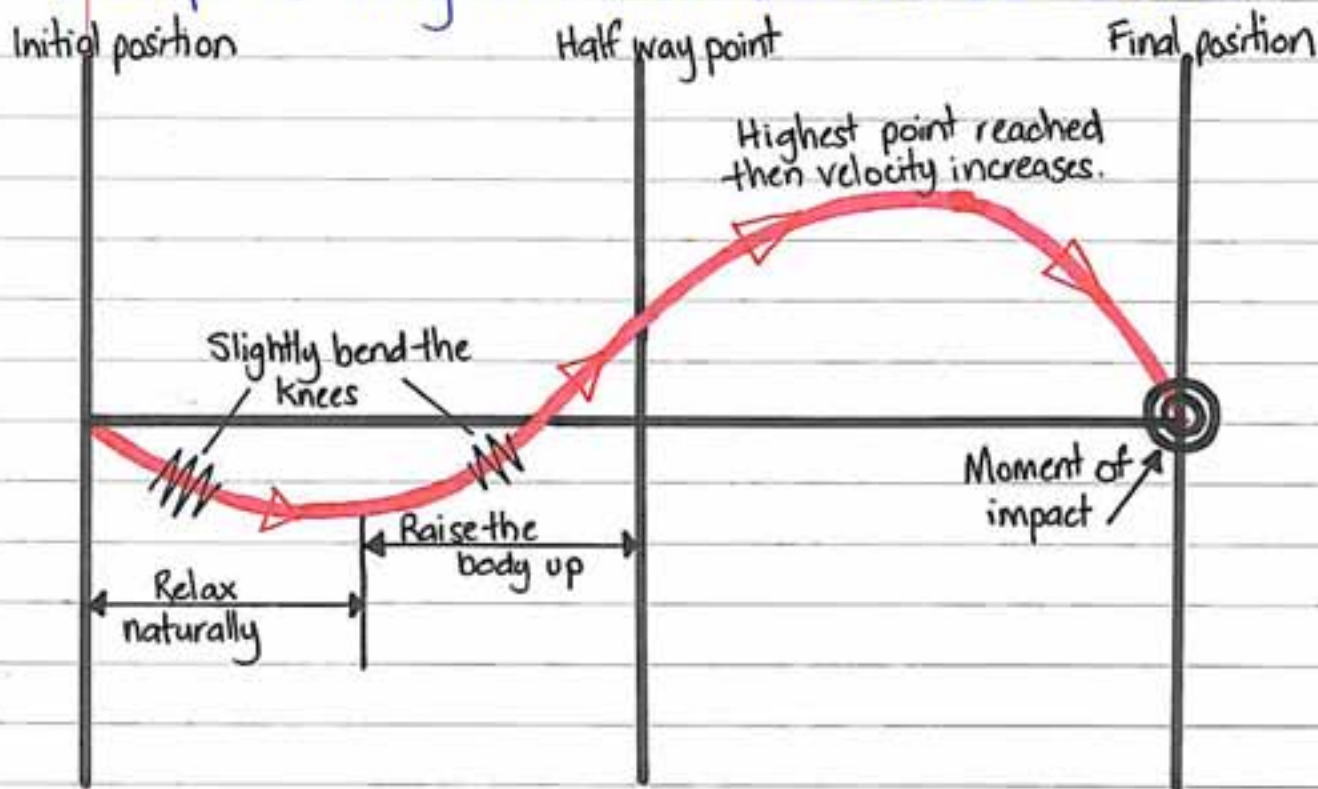 Initial position
Half way point
Final position
Highest point reached
then velocity increases.
Slightly bend the
knees
Moment of
impact
Raise the
body up
Relax
naturally